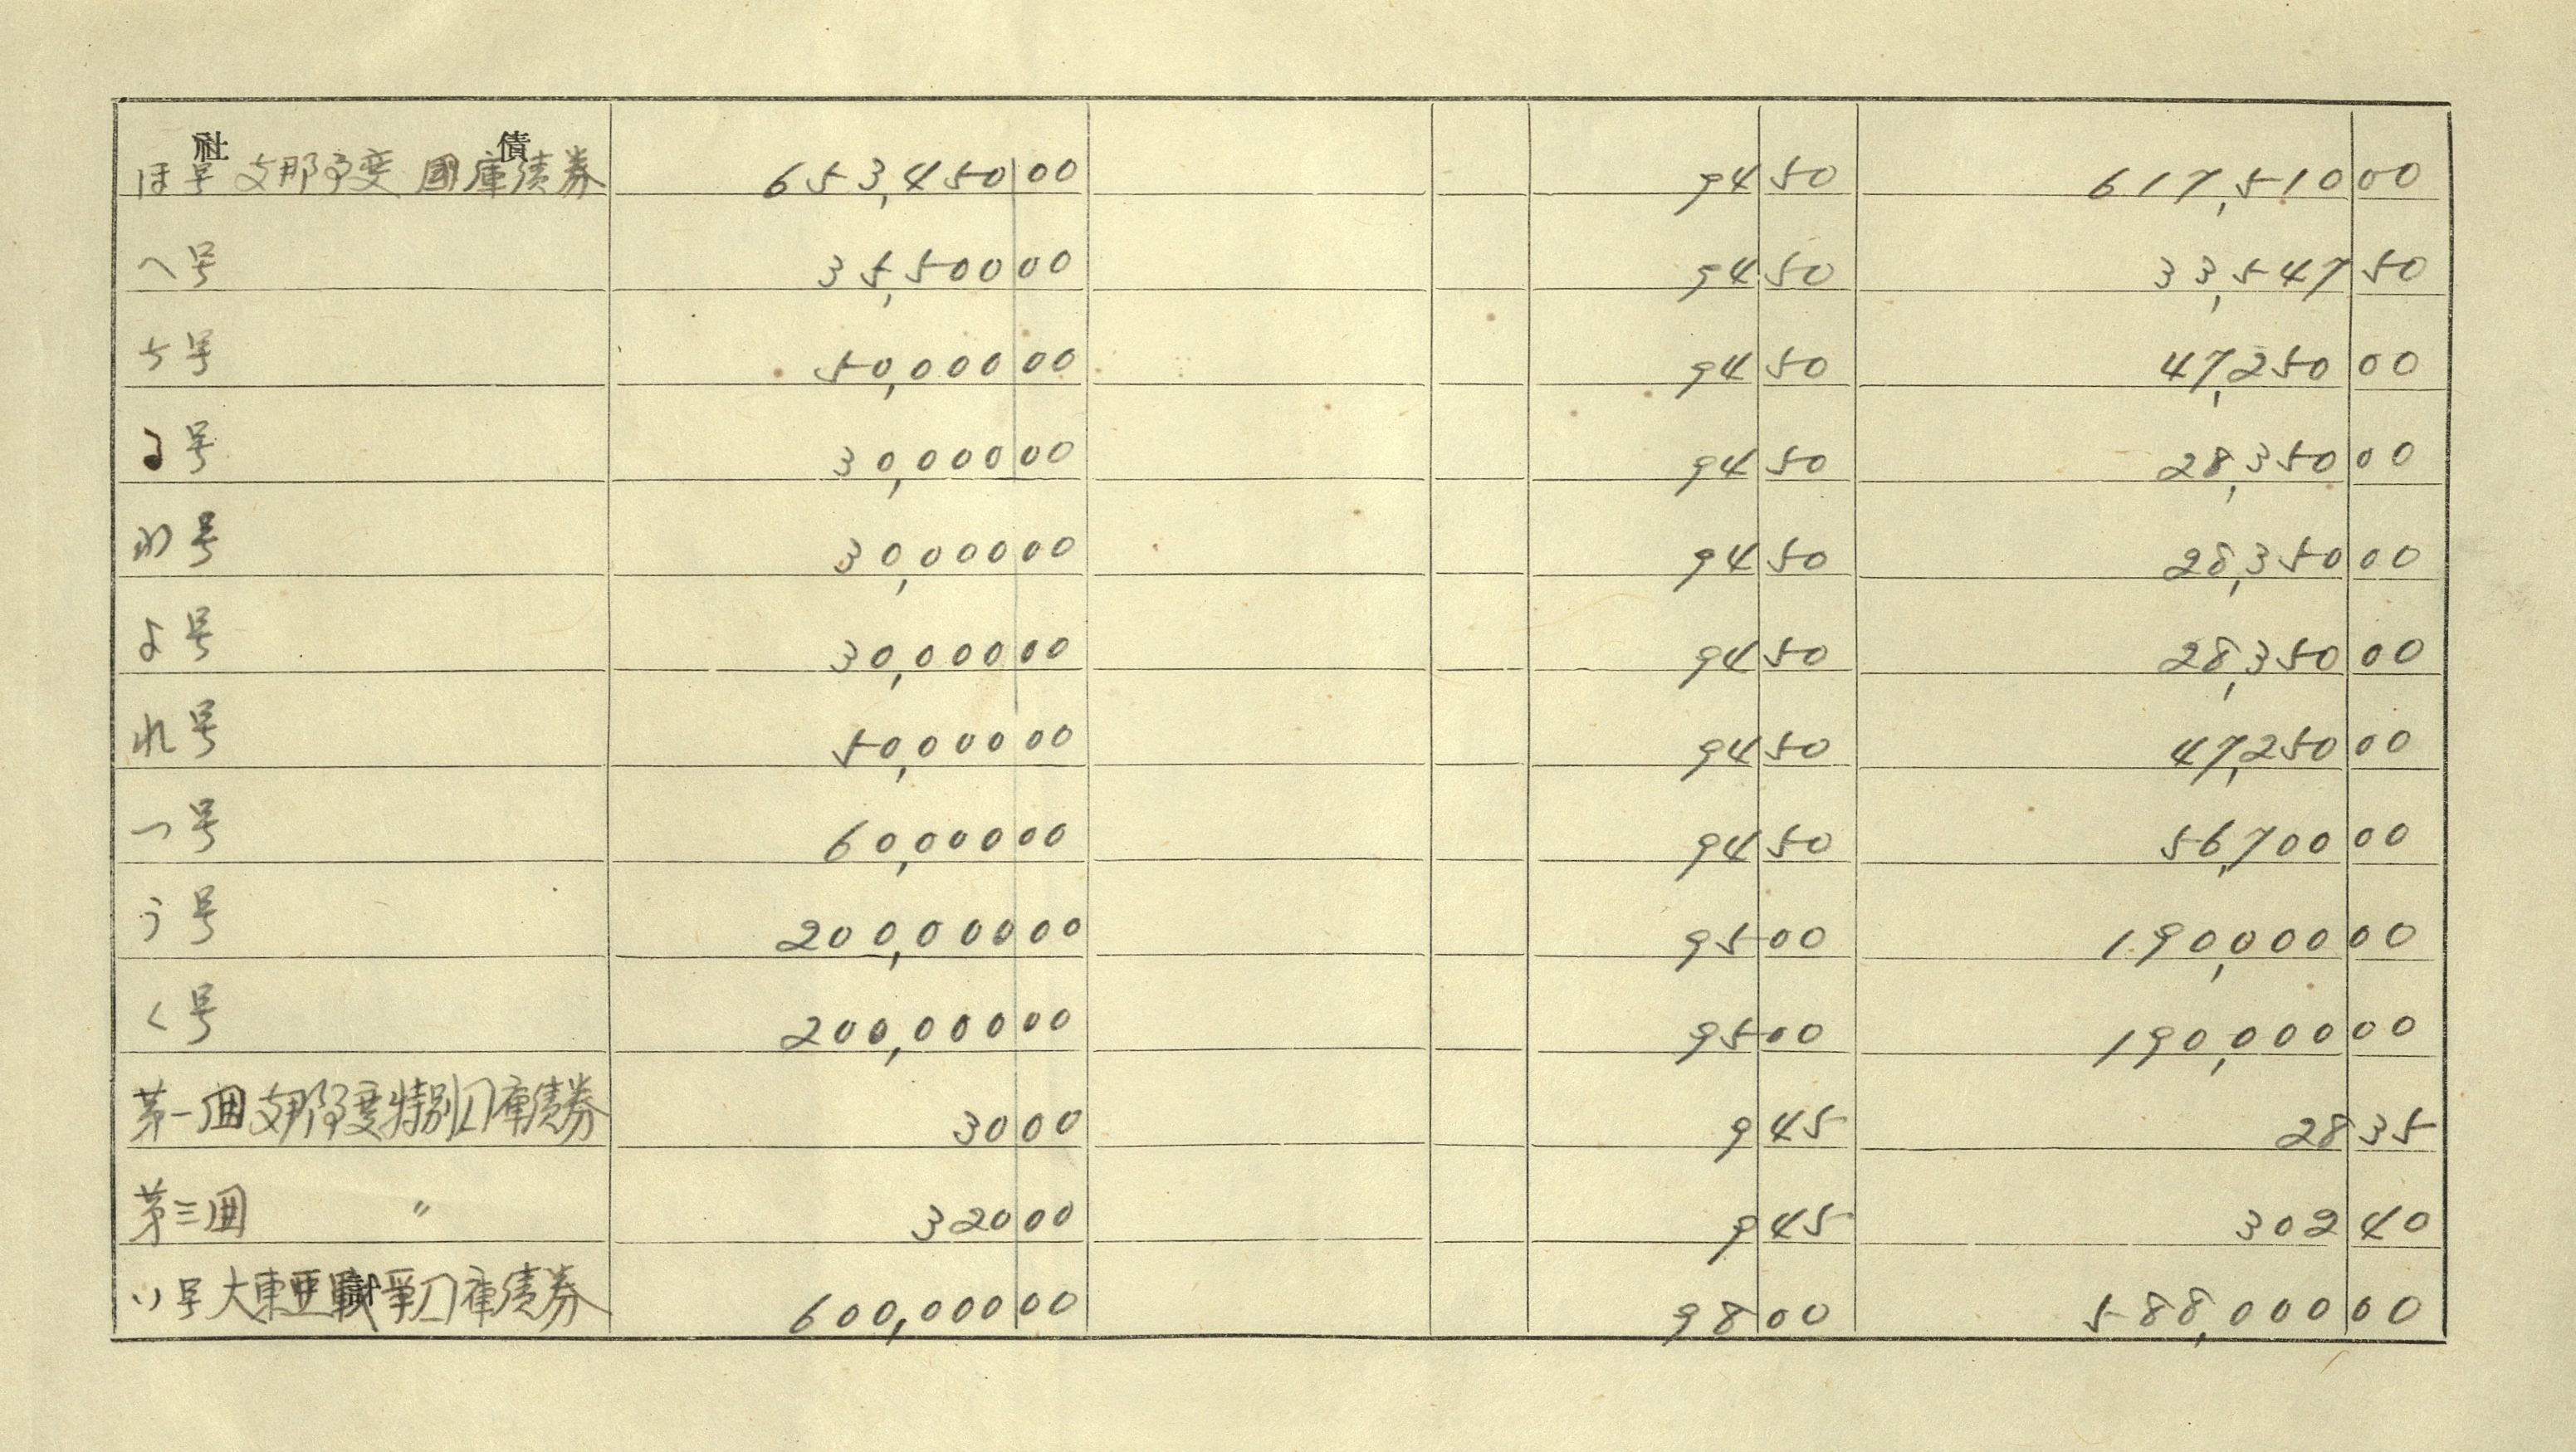 社 債
ほ号 支那事変 國庫債券 653,450 00 94 50 617,510 00
へ号 35,500 00 94 50 33,547 50
ち号 50,000 00 94 50 47,250 00
る号 30,000 00 94 50 28,350 00
わ号 30,000 00 94 50 28,350 00
よ号 30,000 00 94 50 28,350 00
れ号 50,000 00 94 50 47,250 00
つ号 60,000 00 94 50 56,700 00
う号 200,000 00 95 00 190,000 00
く号 200,000 00 95 00 190,000 00
第一回 支那事変特別国庫債券 30 00 9 45 28 35
第三回 〃 320 00 9 45 302 40
い号 大東亜戦争国庫債券 600,000 00 98 00 588,000 00